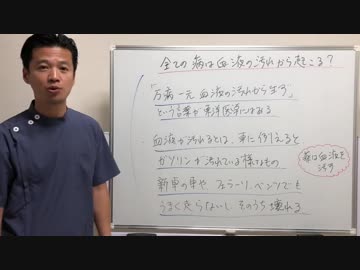 全ての病は血液の汚れから起こる？
「万病一元 血液の汚れから生ず」
という言葉が東洋医学にはある
血液が汚れるとは、車に例えると
ガソリンが汚れている様なもの
新車の車や、フェラーリ、ベンツでも
うまく走らないし、そのうち壊れる
血液を
汚す